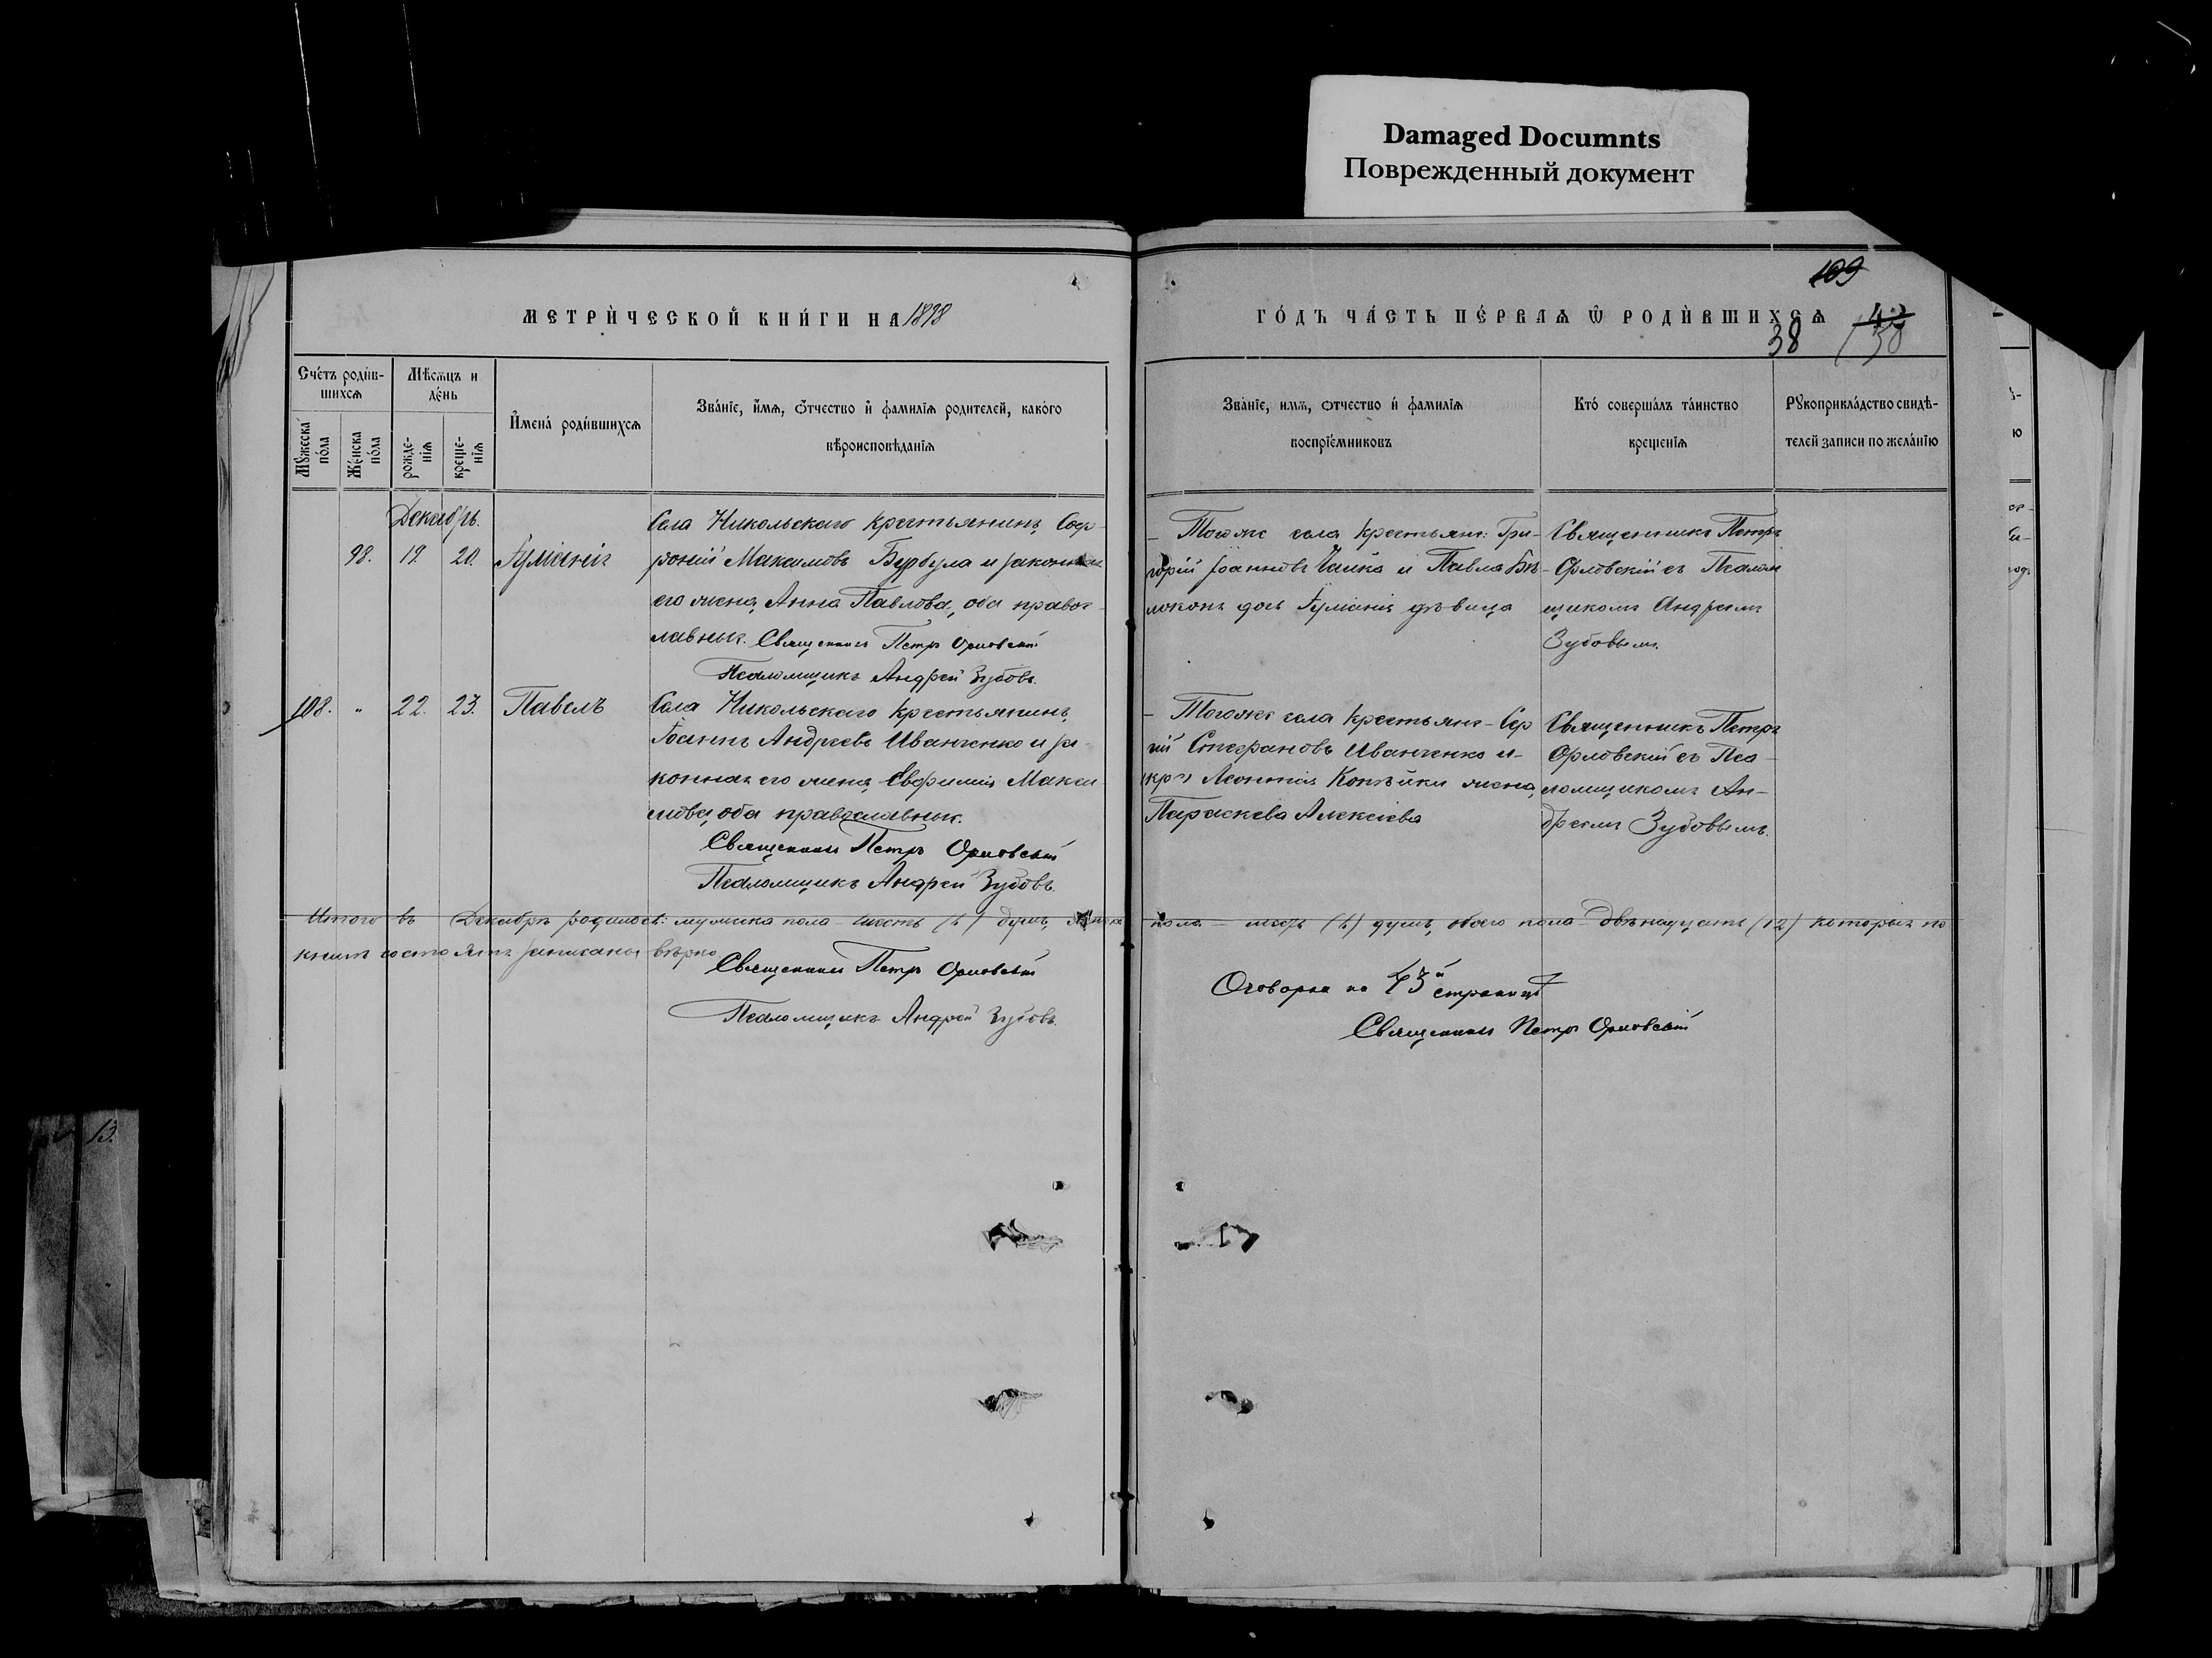 Damaged Documnts
Поврежденный документ
109
МЕТРИ́ЧЕСКОЙ КНИ́ГИ НА 1898
ГО́ДЪ ЧА́СТЬ ПЕ́РВАѦ Ѿ РОДИ́ВШИХСѦ
38
Сче́тъ роди́в-
шихсѧ
Мѣсѧцъ и
де́нь
Мꙋ́жеска по́ла
Же́нска по́ла
рожде-
нїѧ
креще-
нїѧ
И҆мена̀ роди́вшихсѧ
Зва́нїе, и҆́мѧ, ѻ҆́тчество и҆ фамилїѧ родителей, како́го
вѣроисповѣданїѧ
Зва́нїе, имѧ, отчество и́ фамилїѧ
воспрїе́мниковъ
Кто́ соверша́лъ та́инство
крещенїѧ
Рꙋкоприкла́дство свидѣ-
телей записи по жела́нїю
Декабрь.
98. 19. 20. Гуліанія
Села Никольскаго крестьянинъ, Соф-
роній Максимовъ Бурбула и законная
его жена, Анна Павлова, оба правос-
лавные. Священникъ Петръ Орловскій
Псаломщикъ Андрей Зубовъ.
– Тогоже села крестьян: Гри-
горій Іоанновъ Чайка и Павла Бѣ-
локонь дочь Гуліанія дѣвица
Священникъ Петръ
Орловскій съ Псалом
щикомъ Андреемъ
Зубовымъ.
108. „ 22. 23. Павелъ
Села Никольскаго крестьянинъ,
Іоаннъ Андреевъ Иванченко и за-
конная его жена, Евфимия Макси
мова, оба православные.
Священникъ Петръ Орловскій
Псаломщикъ Андрей Зубовъ.
– Тогоже села крестьянъ – Сер
гій Стефановъ Иванченко и
кр-н Леонтія Копѣйки жена,
Параскева Алексіева
Священникъ Петръ
Орловскій съ Пса-
ломщикомъ Ан-
дреемъ Зубовымъ.
Итого въ Декабрѣ родилось: мужска пола – шесть (6) душъ, женска пола – шесть (6) душъ, обоего пола – двѣнадцать (12) которыя по
книгѣ состоятъ записаны вѣрно
Священникъ Петръ Орловскій
Псаломщикъ Андрей Зубовъ.
Оговорка на 43й страницѣ
Священникъ Петръ Орловскій
13.